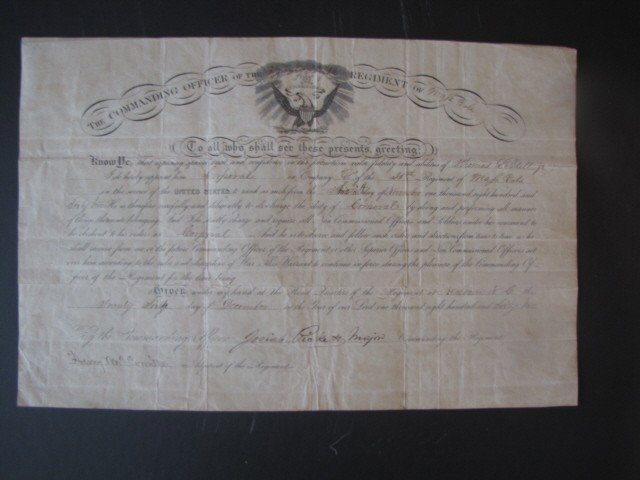 THE COMMANDING OFFICER OF THE REGIMENT OF Mass Vols.
To all who shall see these presents, greeting:
Know Ye, that reposing special trust and confidence in the patriotism, valor, fidelity and abilities of
I do hereby appoint him Corporal in Company of the Regiment of Mass Vols
in the service of the UNITED STATES to rank as such from the day of one thousand eight hundred and
sixty He is therefore carefully and diligently to discharge the duty of Corporal by doing and performing all manner
of things thereunto belonging. And I do strictly charge and require all Non-Commissioned Officers and Soldiers under his command to
be obedient to his orders as Corporal And he is to observe and follow such orders and directions from time to time as he
shall receive from me or the future Commanding Officer of the Regiment or other Superior Officers and Non-Commissioned Officers set
over him according to the rules and discipline of War. This Warrant to continue in force during the pleasure of the Commanding Of-
ficer of the Regiment for the time being.
GIVEN under my hand at the Head Quarters of the Regiment at N. C.
Twenty day of December in the Year of our Lord one thousand eight hundred and sixty two
By the Commanding Officer Josiah Major Commanding the Regiment
Adjutant of the Regiment